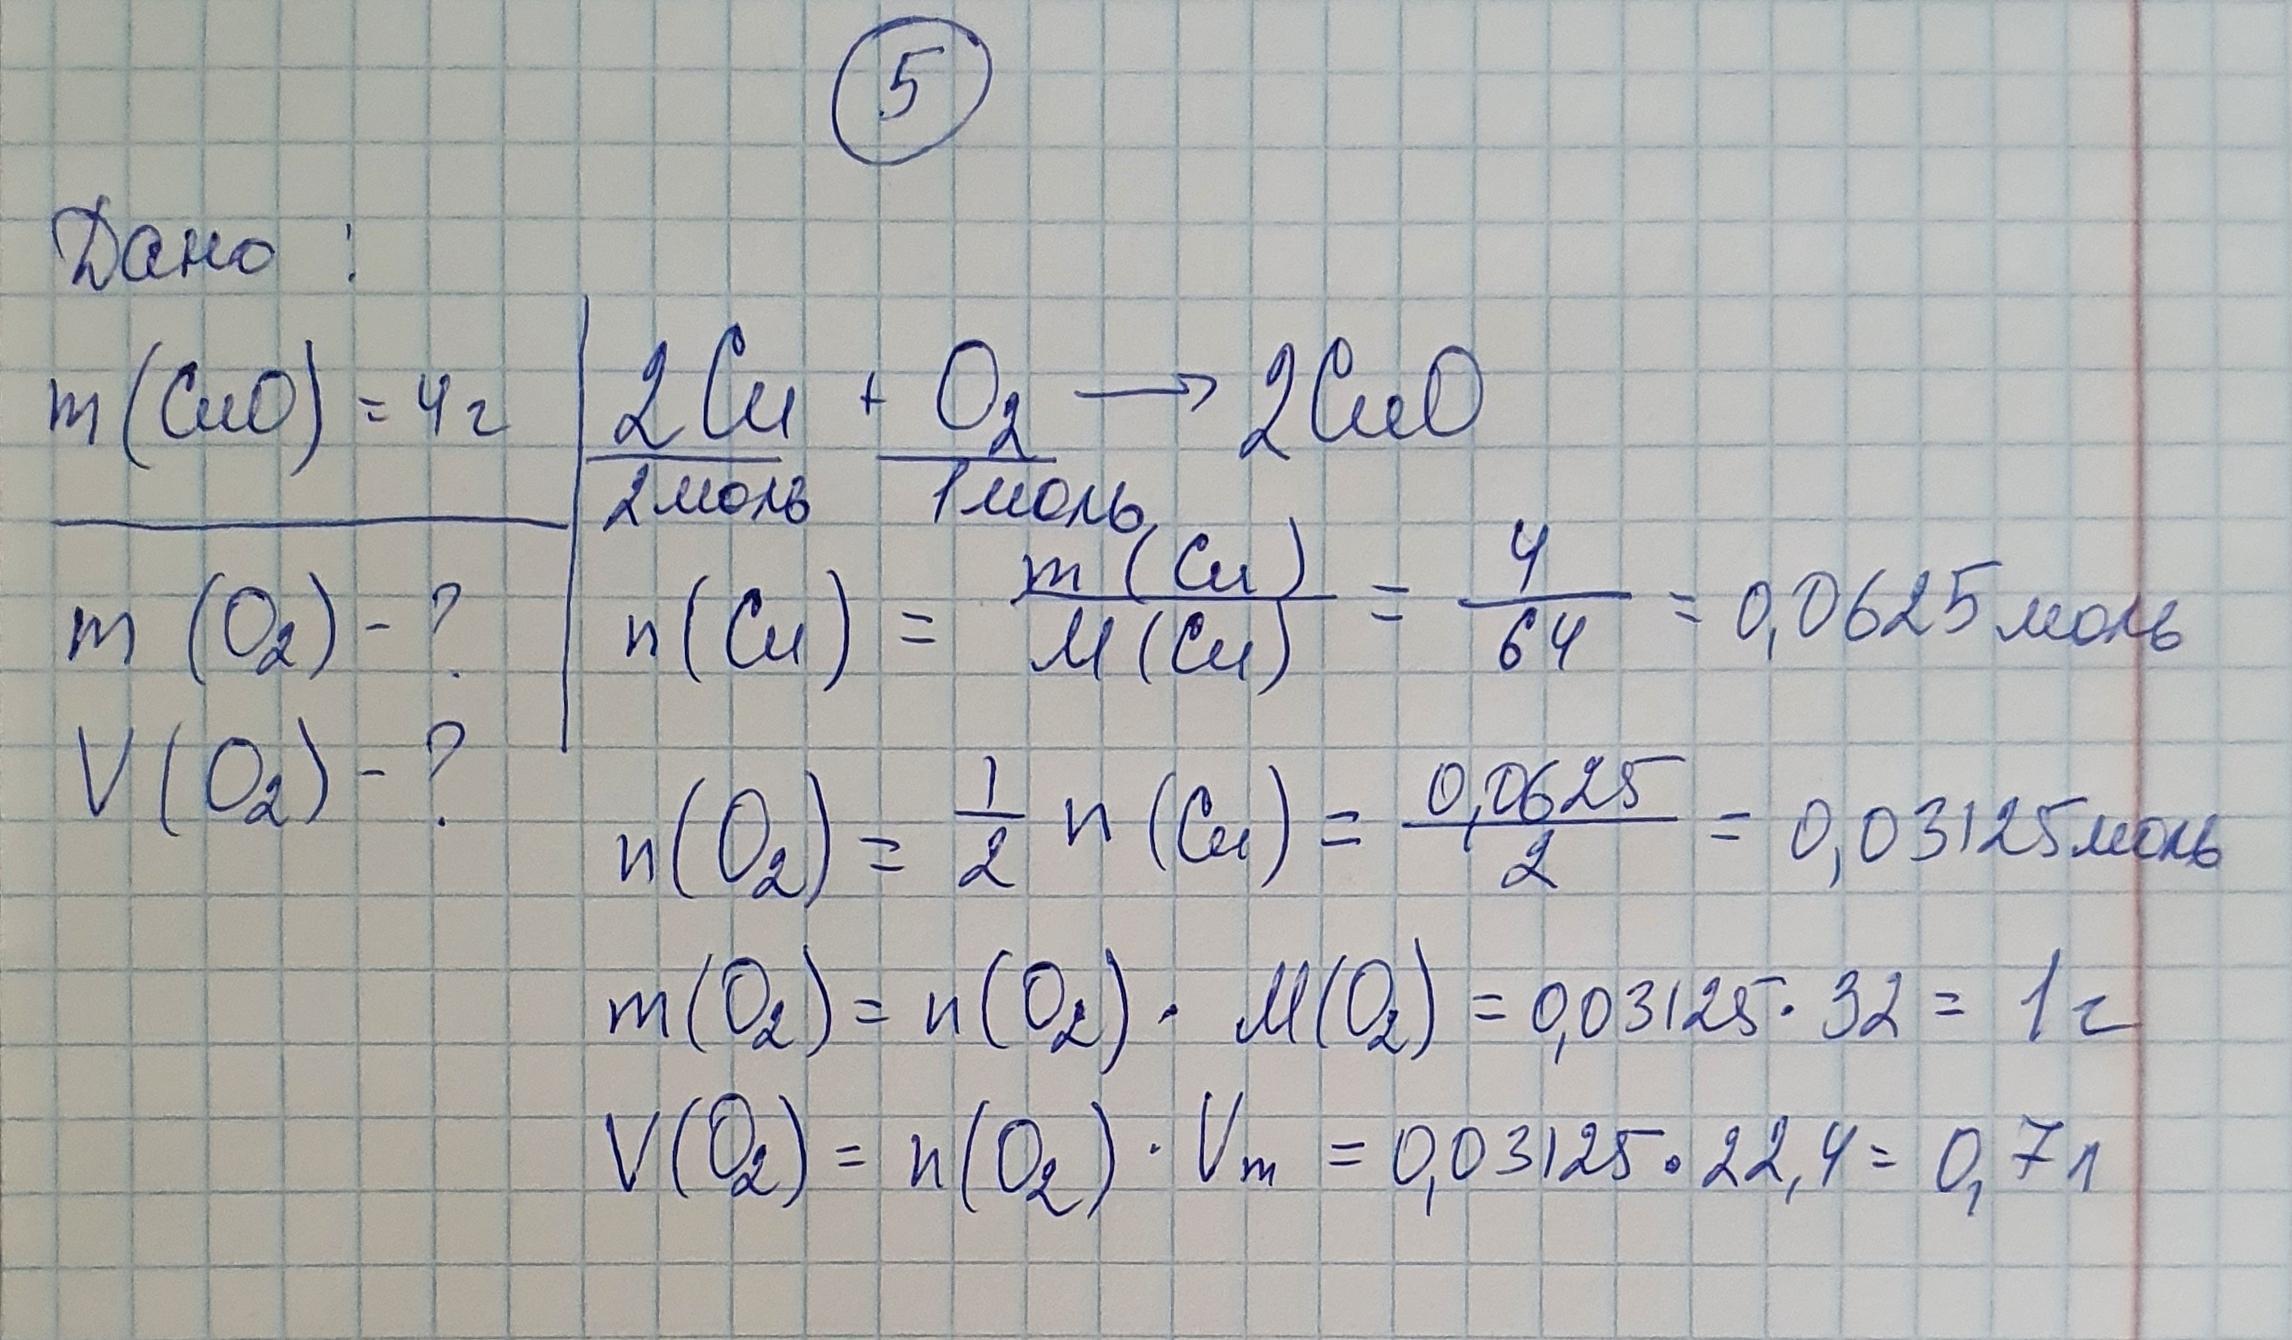 5
Дано :
m (CuO) = 4г
m (O₂) - ?
V (O₂) - ?
2Cu + O₂ → 2CuO
2моль 1моль
n (Cu) = m (Cu) / M (Cu) = 4 / 64 = 0,0625 моль
n (O₂) = 1/2 n (Cu) = 0,0625 / 2 = 0,03125 моль
m (O₂) = n (O₂) · M (O₂) = 0,03125 · 32 = 1 г
V (O₂) = n (O₂) · Vm = 0,03125 · 22,4 = 0,7 л